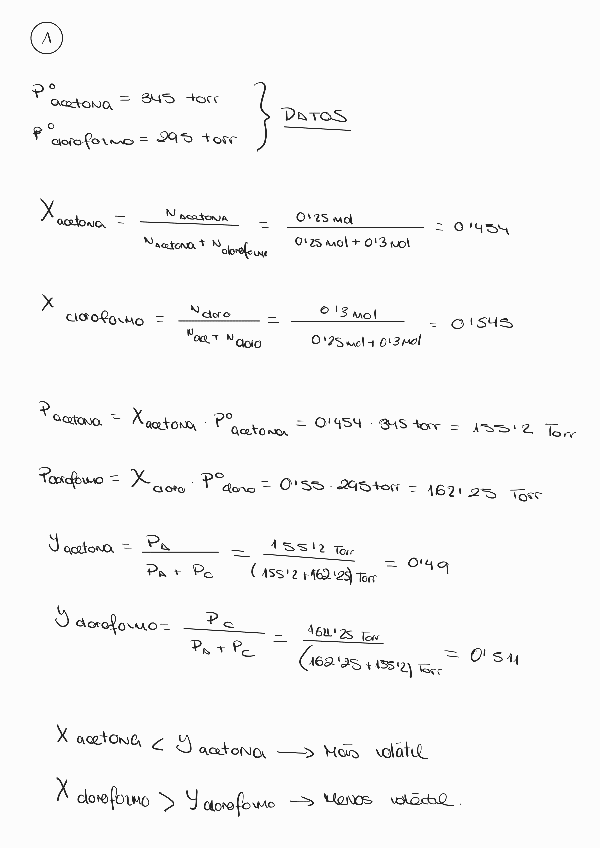 A
P°acetona = 345 torr
P°cloroformo = 295 torr } DATOS
Xacetona = Nacetona / (Nacetona + Ncloroformo) = 0'25 mol / (0'25 mol + 0'3 mol) = 0'454
X cloroformo = Ncloro / (Nace + Ncloro) = 0'3 mol / (0'25 mol + 0'3 mol) = 0'545
Pacetona = Xacetona · P°acetona = 0'454 · 345 torr = 155'2 Torr
Pcloroformo = X cloro · P°cloro = 0'55 · 295 torr = 162'25 Torr
Yacetona = PA / (PA + PC) = 155'2 Torr / (155'2 + 162'25) Torr = 0'49
Ycloroformo = PC / (PA + PC) = 162'25 Torr / (162'25 + 155'2) Torr = 0'511
X acetona < Y acetona → Más volátil
X cloroformo > Y cloroformo → Menos volátil.